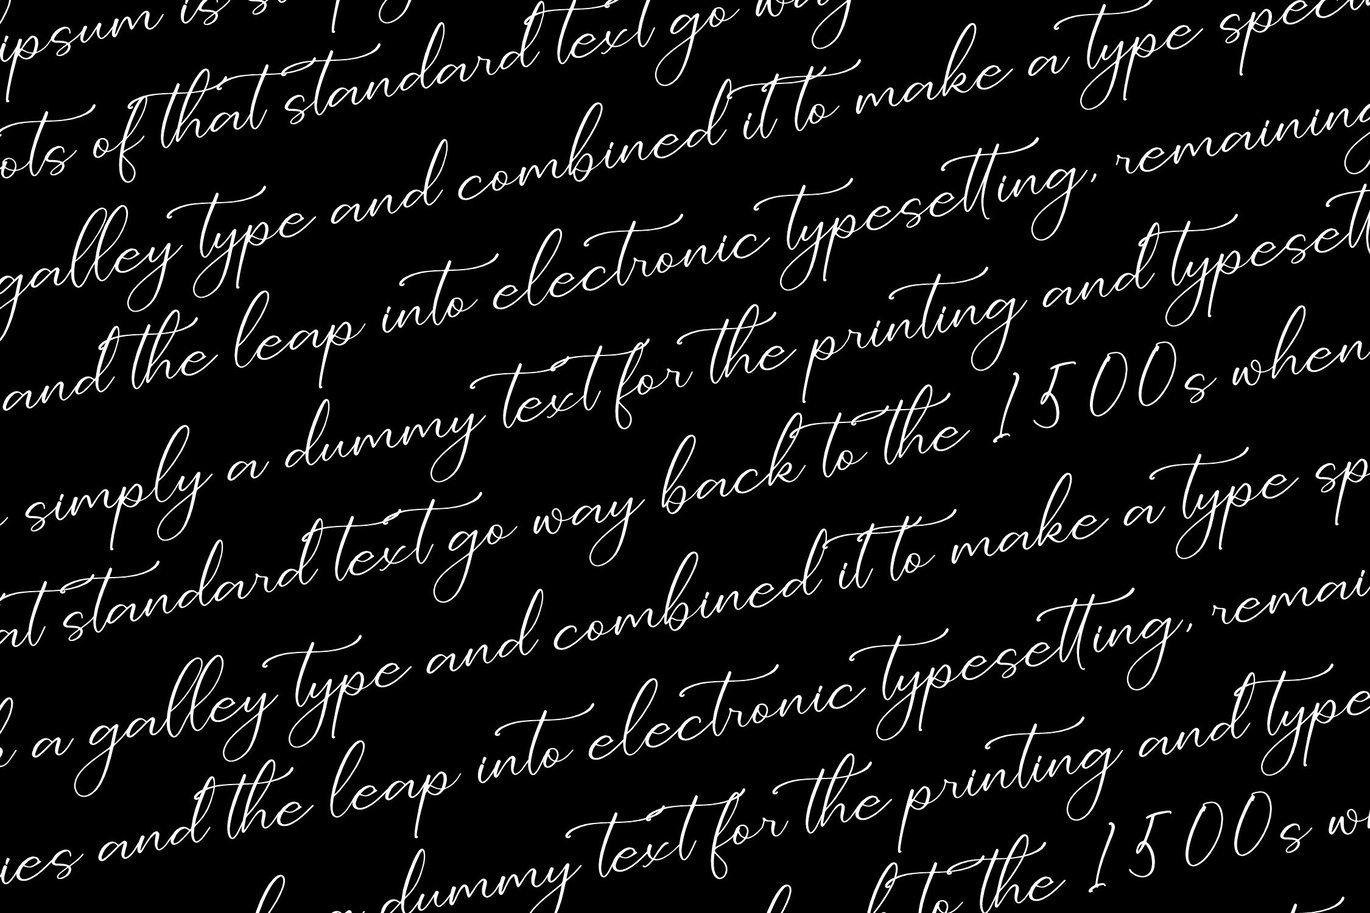 ipsum is
ots of that standard text go way
galley type and combined it to make a type speci
and the leap into electronic typesetting, remaining
simply a dummy text for the printing and typesett
at standard text go way back to the 1500s when
k a galley type and combined it to make a type sp
ies and the leap into electronic typesetting, remai
dummy text for the printing and type
to the 1500s w